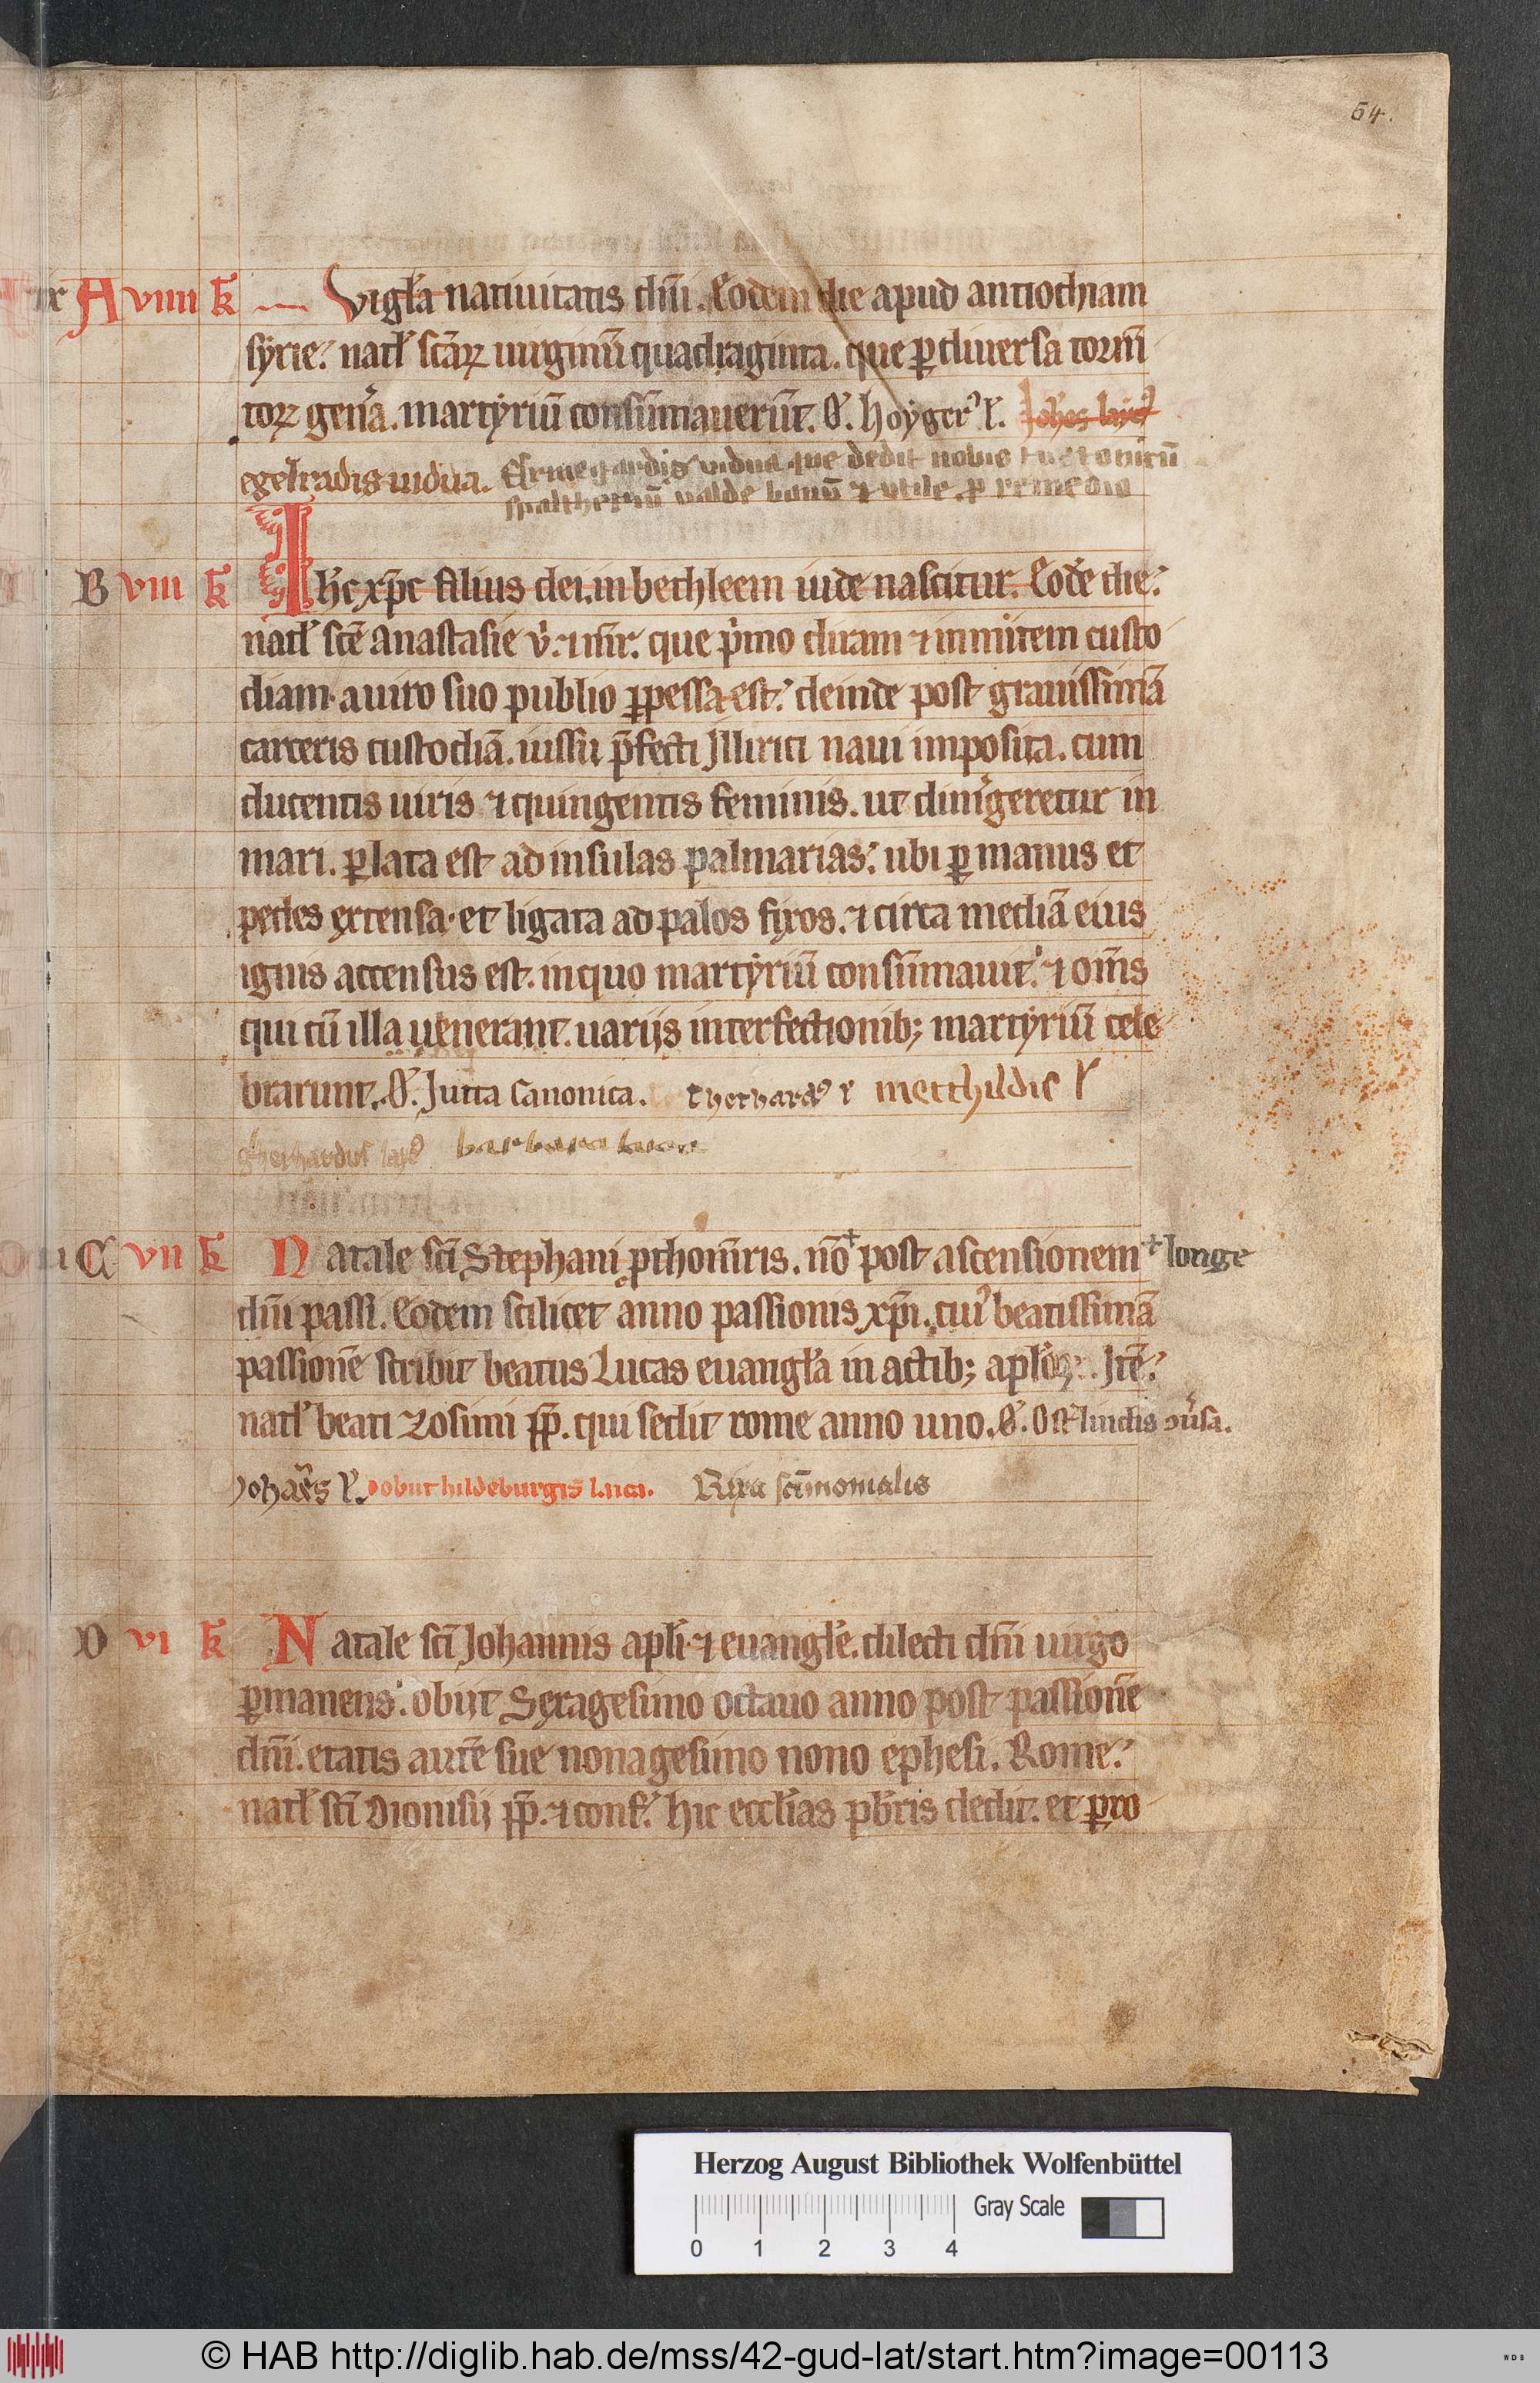 54.
ix A viiii k̅ Vigl̅a natiuitatis dn̅i. Eodem die apud antiochiam
syrie. natl̅ sc̅aꝝ uirginu̅ quadraginta. que ꝑ diuersa torm̅
toꝝ gen̅a. martyriu̅ consu̅mauerūt. O̅. hoẏgerꝰ l̅. Joh̅es layꝰ
egelradis uidua. Ermegardis vidua que dedit nobis tuetonicu̅
spaltheriu̅ valde bonu̅ ⁊ vtile ꝑ remedio
B viii k̅ Ih̅c xp̅c filius dei. in bethleem iude nascitur. Eode̅ die.
natl̅ sc̅e Anastasie v̇. ⁊ m̅r. que p̍mo diram ⁊ inmitem custo
diam. a uiro suo publio ꝑpessa est. deinde post grauissima̅
carceris custodia̅. iussu p̅fecti Illirici naui imposita. cum
ducentis uiris ⁊ quingentis feminis. ut dim̍geretur in
mari. ꝑlata est ad insulas palmarias. ubi ꝑ manus et
pedes extensa. et ligata ad palos fixos. ⁊ circa media̅ eius
ignis accensus est. in quo martyriu̅ consu̅mauit. ⁊ om̅s
qui cu̅ illa uenerant. uarijs interfectionib; martyriu̅ cele
brarunt. O̅. Jutta canonica. Thethardꝰ l̅ metthildis l̅
gherhardus layꝰ barbara
C vii k̅ Natale sc̅i Stephani ꝓthom̅ris. no̅ ⁺ post ascensionem ⁺ longe
dn̅i passi. Eodem scilicet anno passionis xp̅i. cuiꝰ beatissima̅
passione̅ scribit beatus Lucas euangl̅a in actib; apl̅oꝝ. Ite̅.
natl̅ beati zosimi p̅p. qui sedit rome anno uno. O̅. Ostˀlindis ↄu̅sa.
Joha̅es l̅. obijt hildeburgis laica. Rixa sc̅imonialis
D vi k̅ Natale sc̅i Johannis apl̅i. ⁊ euangl̅e. dilecti dn̅i uirgo
ꝑmanens. obijt Sexagesimo octauo anno post passione̅
dn̅i. etatis aute̅ sue nonagesimo nono ephesi. Rome.
natl̅ sc̅i Dionisij p̅p. ⁊ conf. hic eccl̅ias pb̅ris dedit. et ꝑro
Herzog August Bibliothek Wolfenbüttel
Gray Scale
0 1 2 3 4
© HAB http://diglib.hab.de/mss/42-gud-lat/start.htm?image=00113
WDB